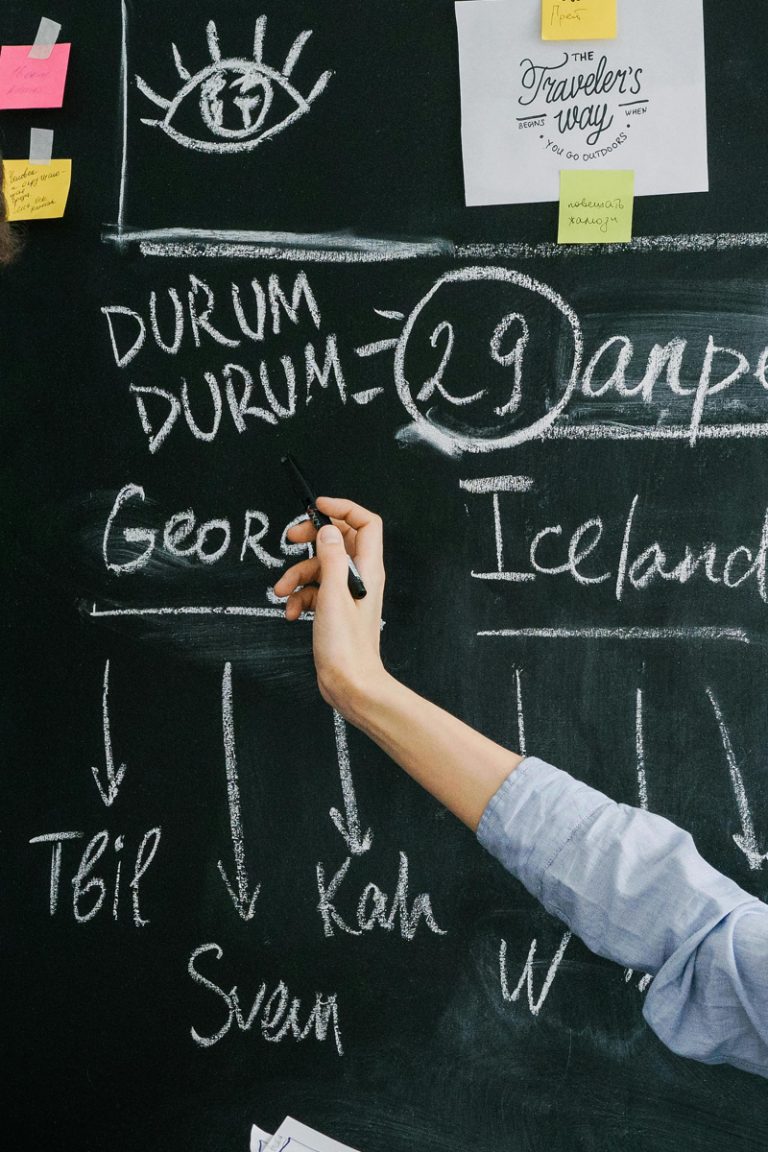 Прет
THE
Traveler's
way
BEGINS WHEN
YOU GO OUTDOORS
повешать
жалюзи
DURUM
DURUM = 29 апре
Georg
Iceland
Tbil
Kah
Svan
W